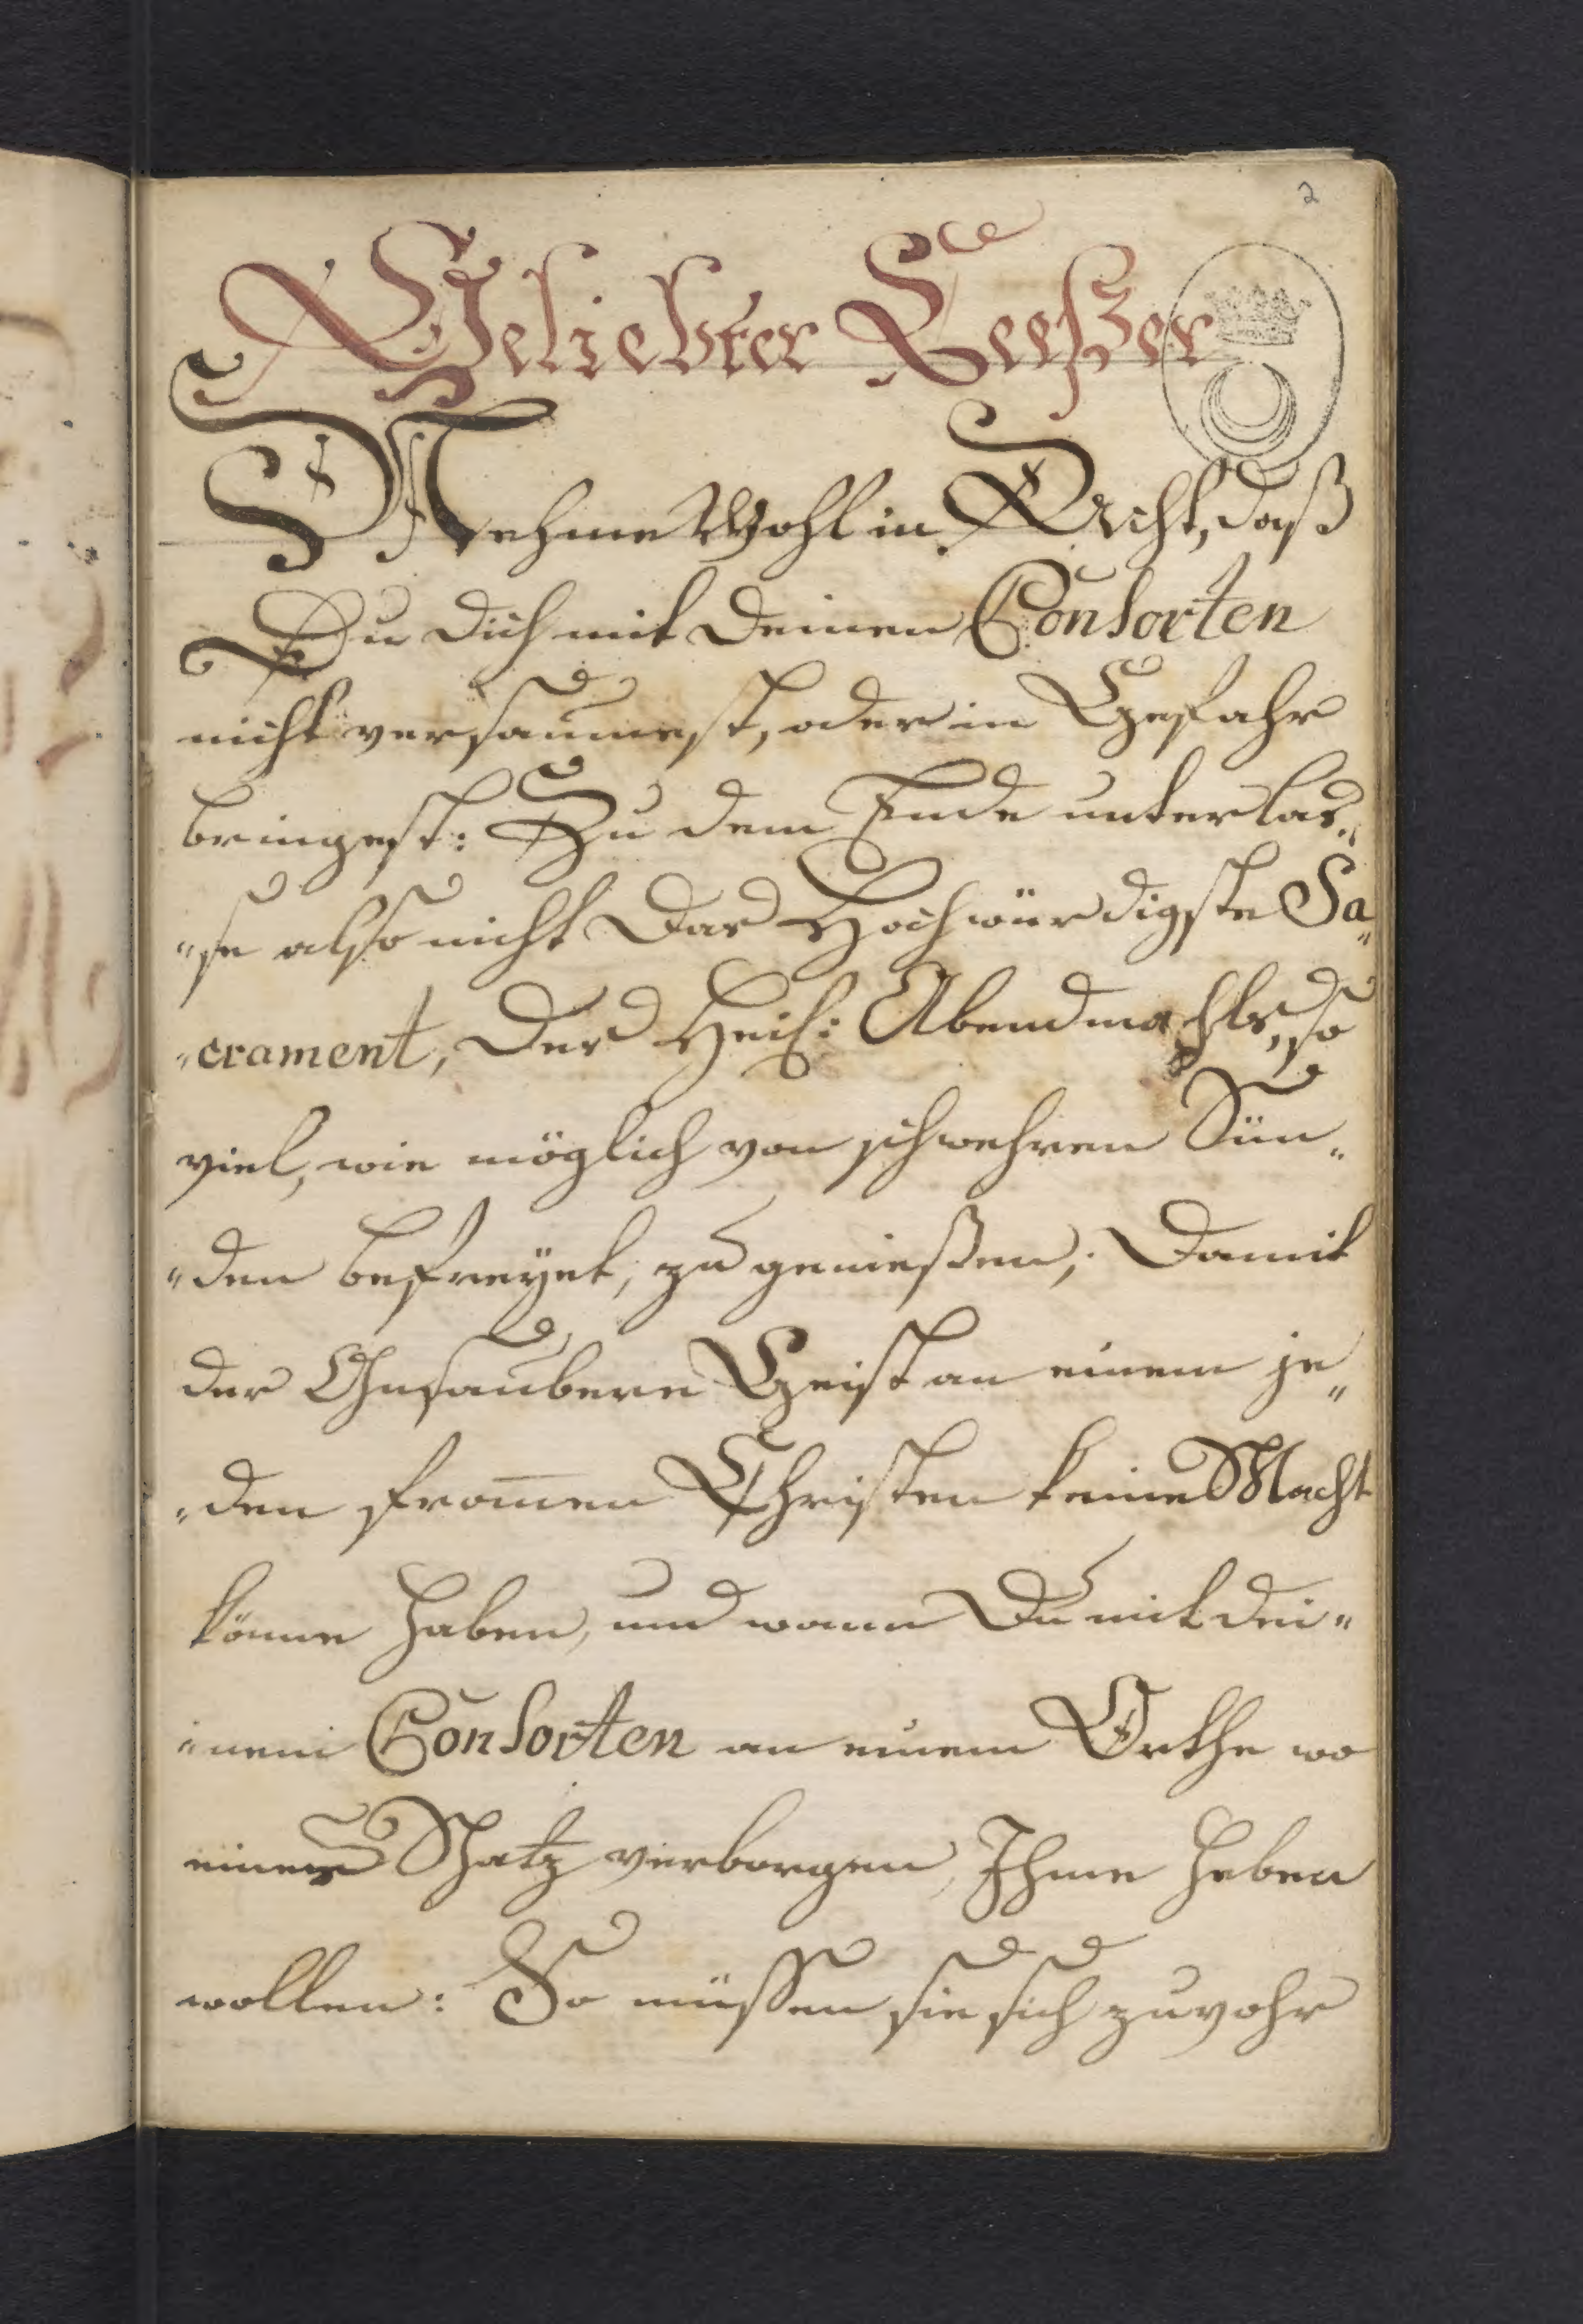 2
Geliebter Leeßer
Nehme Wohl in Acht, daß
Du dich mit Deinen Consorten
nicht versaumest, oder in Gefahr
bringest: Zu dem Ende unterlas„
„se also nicht Das Hochwürdigste Sa„
„crament, Des Heil: Abendmahls, so
viel, wie möglich von schwehren Sün„
„den befreyet, zu genießen; Damit
der Unsaubere Geist an einem je„
„den from̄en Christen keine Macht
könne haben, und wann Du mit dei„
„nem Consorten an einem Orthe wo
einer Schatz verborgen, Ihme heben
wollen: So müssen sie sich zuvohr